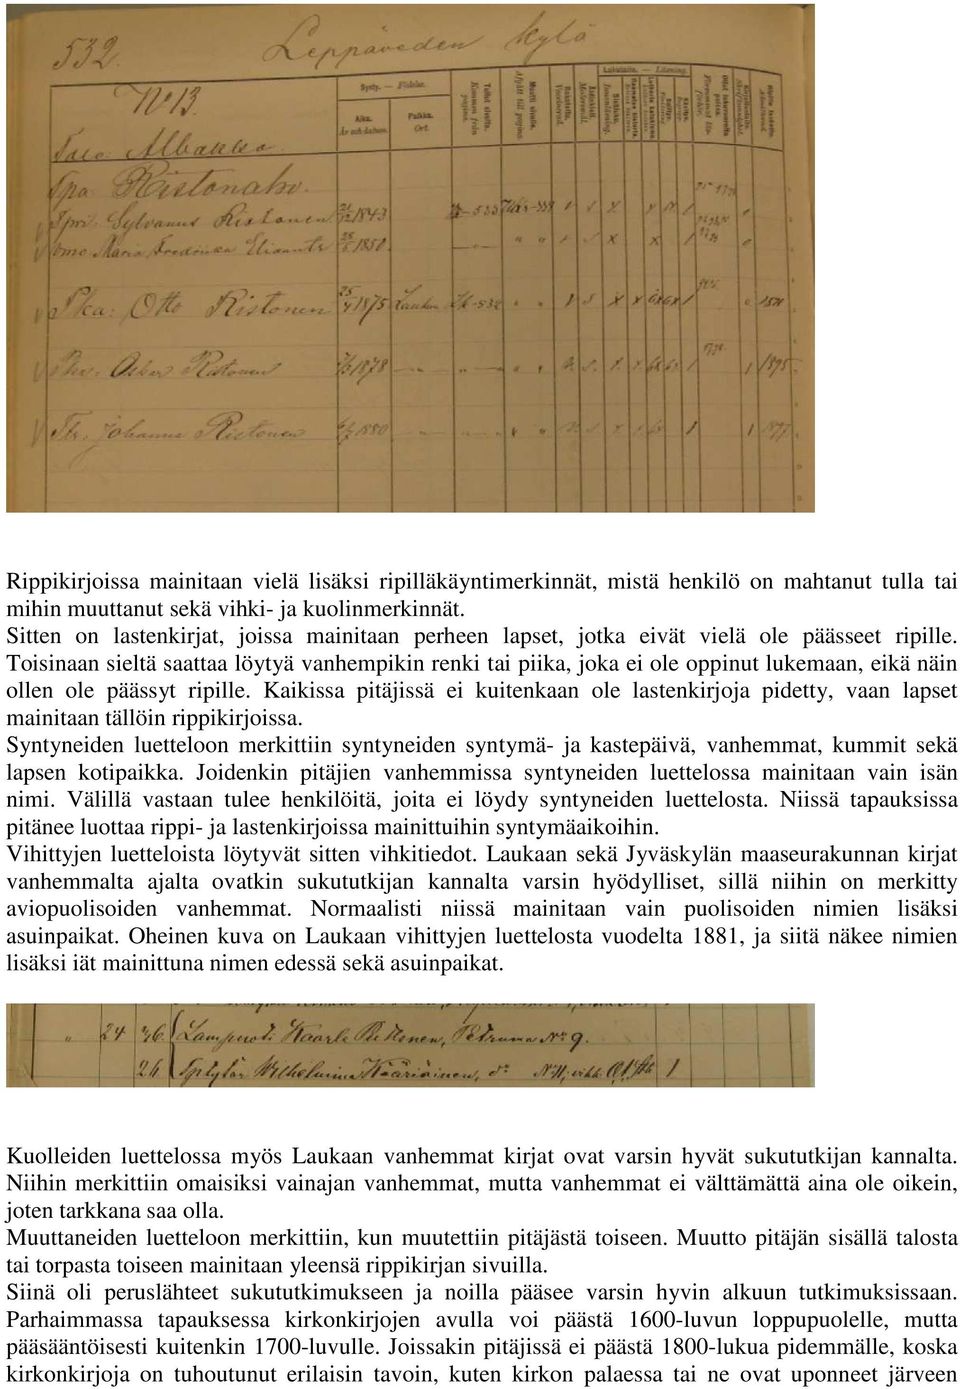 532. Leppäveden kylä
N:o 13.
Synty. — Födelse.
Lukutaito. — Läsning.
Aika.
År och datum.
Paikka.
Ort.
Talo: Albakka.
Tpa: Ristonaho.
Tpm: Sylvanus Ristonen 1843
Vmo: Maria Fredriika Eliaant: 1850.
Pka: Otto Ristonen 1875 Laukaa 532
Pka: Oskar Ristonen 1878 1895
Tr: Johanna Ristonen 1880 1877
Rippikirjoissa mainitaan vielä lisäksi ripilläkäyntimerkinnät, mistä henkilö on mahtanut tulla tai
mihin muuttanut sekä vihki- ja kuolinmerkinnät.
Sitten on lastenkirjat, joissa mainitaan perheen lapset, jotka eivät vielä ole päässeet ripille.
Toisinaan sieltä saattaa löytyä vanhempikin renki tai piika, joka ei ole oppinut lukemaan, eikä näin
ollen ole päässyt ripille. Kaikissa pitäjissä ei kuitenkaan ole lastenkirjoja pidetty, vaan lapset
mainitaan tällöin rippikirjoissa.
Syntyneiden luetteloon merkittiin syntyneiden syntymä- ja kastepäivä, vanhemmat, kummit sekä
lapsen kotipaikka. Joidenkin pitäjien vanhemmissa syntyneiden luettelossa mainitaan vain isän
nimi. Välillä vastaan tulee henkilöitä, joita ei löydy syntyneiden luettelosta. Niissä tapauksissa
pitänee luottaa rippi- ja lastenkirjoissa mainittuihin syntymäaikoihin.
Vihittyjen luetteloista löytyvät sitten vihkitiedot. Laukaan sekä Jyväskylän maaseurakunnan kirjat
vanhemmalta ajalta ovatkin sukututkijan kannalta varsin hyödylliset, sillä niihin on merkitty
aviopuolisoiden vanhemmat. Normaalisti niissä mainitaan vain puolisoiden nimien lisäksi
asuinpaikat. Oheinen kuva on Laukaan vihittyjen luettelosta vuodelta 1881, ja siitä näkee nimien
lisäksi iät mainittuna nimen edessä sekä asuinpaikat.
" 24 36 Lampuoti Kaarle Ristonen, Petruma N:o 9.
26 Tptytär Wilhelmiina Kääriäinen, d:o N:o 11, vihk. 1
Kuolleiden luettelossa myös Laukaan vanhemmat kirjat ovat varsin hyvät sukututkijan kannalta.
Niihin merkittiin omaisiksi vainajan vanhemmat, mutta vanhemmat ei välttämättä aina ole oikein,
joten tarkkana saa olla.
Muuttaneiden luetteloon merkittiin, kun muutettiin pitäjästä toiseen. Muutto pitäjän sisällä talosta
tai torpasta toiseen mainitaan yleensä rippikirjan sivuilla.
Siinä oli peruslähteet sukututkimukseen ja noilla pääsee varsin hyvin alkuun tutkimuksissaan.
Parhaimmassa tapauksessa kirkonkirjojen avulla voi päästä 1600-luvun loppupuolelle, mutta
pääsääntöisesti kuitenkin 1700-luvulle. Joissakin pitäjissä ei päästä 1800-lukua pidemmälle, koska
kirkonkirjoja on tuhoutunut erilaisin tavoin, kuten kirkon palaessa tai ne ovat uponneet järveen